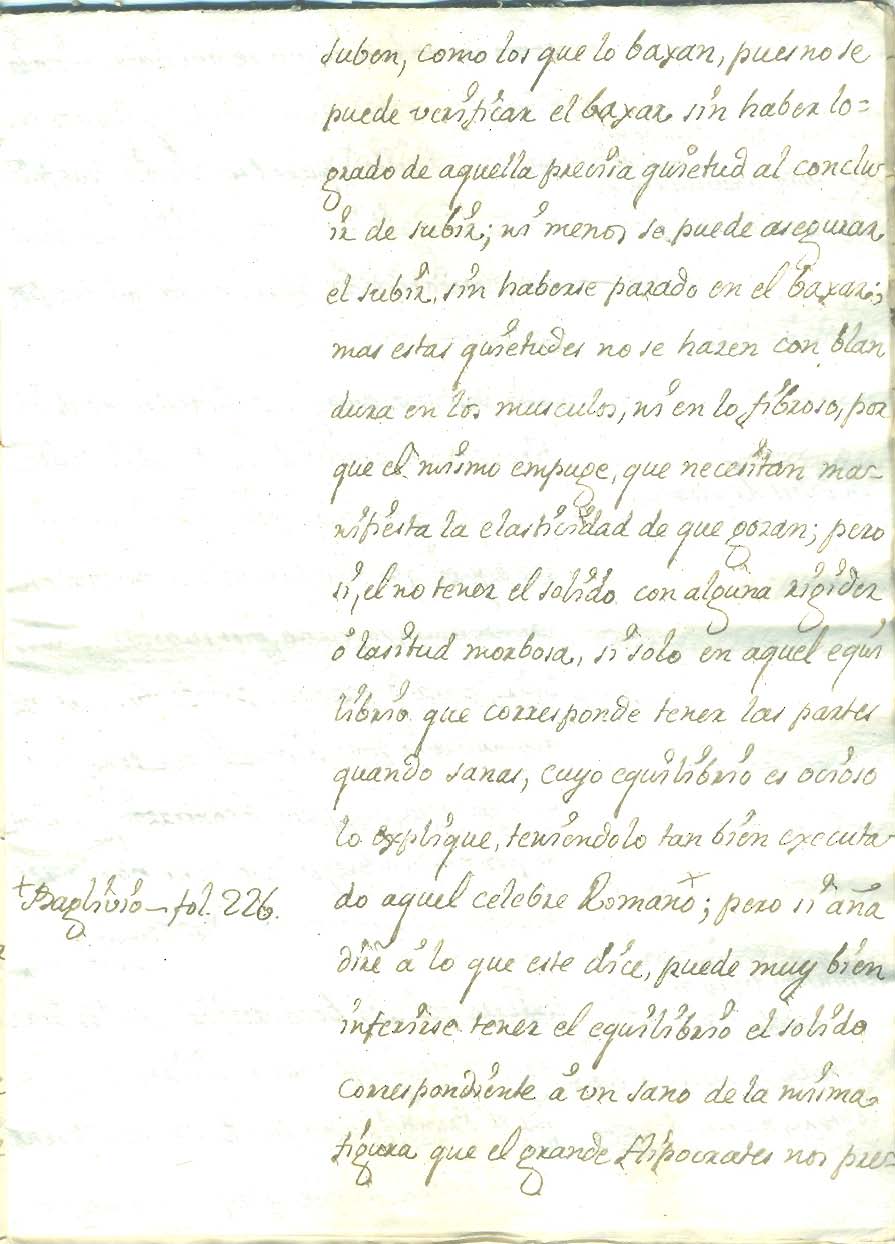 suben, como los que lo baxan, pues no se
puede verificar el baxar sin haber lo=
grado de aquella precisa quietud al conclu-
ir de subir; ni menos se puede asegurar
el subir, sin haberse parado en el baxar;
mas estas quietudes no se hazen con blan
dura en los musculos, ni en lo fibroso, por
que el mismo empuge, que necesitan ma-
nifiesta la elasticidad de que gozan; pero
si, el no tener el solido con alguna rigidez
ó lasitud morbosa, si solo en aquel equi
librio que corresponde tener las partes
quando sanas, cuyo equilibrio es ocioso
lo explique, teniendolo tan bien executa-
+ Baglivio - fol. 226.
do aquel celebre Romano+; pero si aña
diré á lo que este dice, puede muy bien
inferirse tener el equilibrio el solido
correspondiente á un sano de la misma
figura que el grande Hipocrates nos pre=